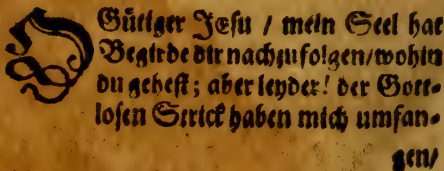 O Gütiger JEsu / mein Seel hat
Begirde dir nachzufolgen/wohin
du gehest; aber leyder! der Gott-
losen Strick haben mich umfan-
gen/